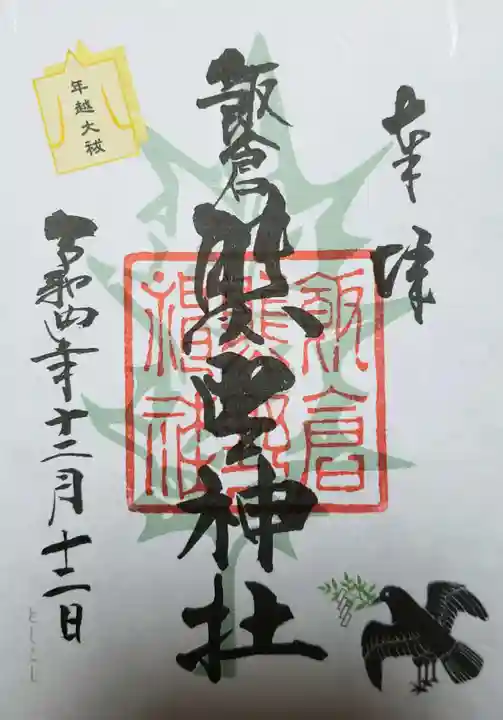 奉拝
飯倉
熊野神社
飯倉熊野神社
令和四年十二月十二日
年越大祓
としこし